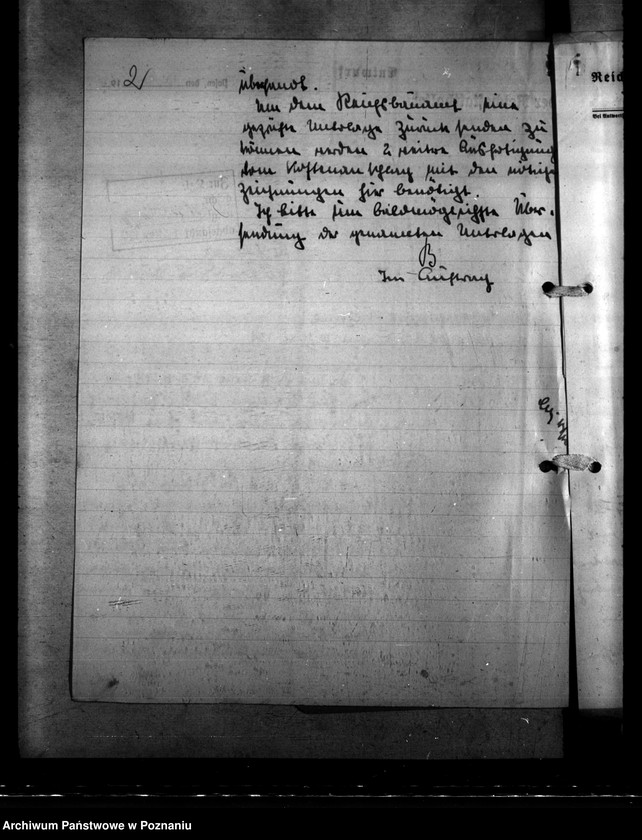 2
übersandt.
Um dem Reichsbauamt eine
geprüfte Unterlage zurücksenden zu
können werden 2 weitere Ausfertigung
vom Kostenanschlag mit den nötig
Zeichnungen hier benötigt.
Ich bitte um baldmöglichste Über-
sendung der genannten Unterlagen
B
Im Auftrag
Reic
Bei Antwort
Archiwum Państwowe w Poznaniu